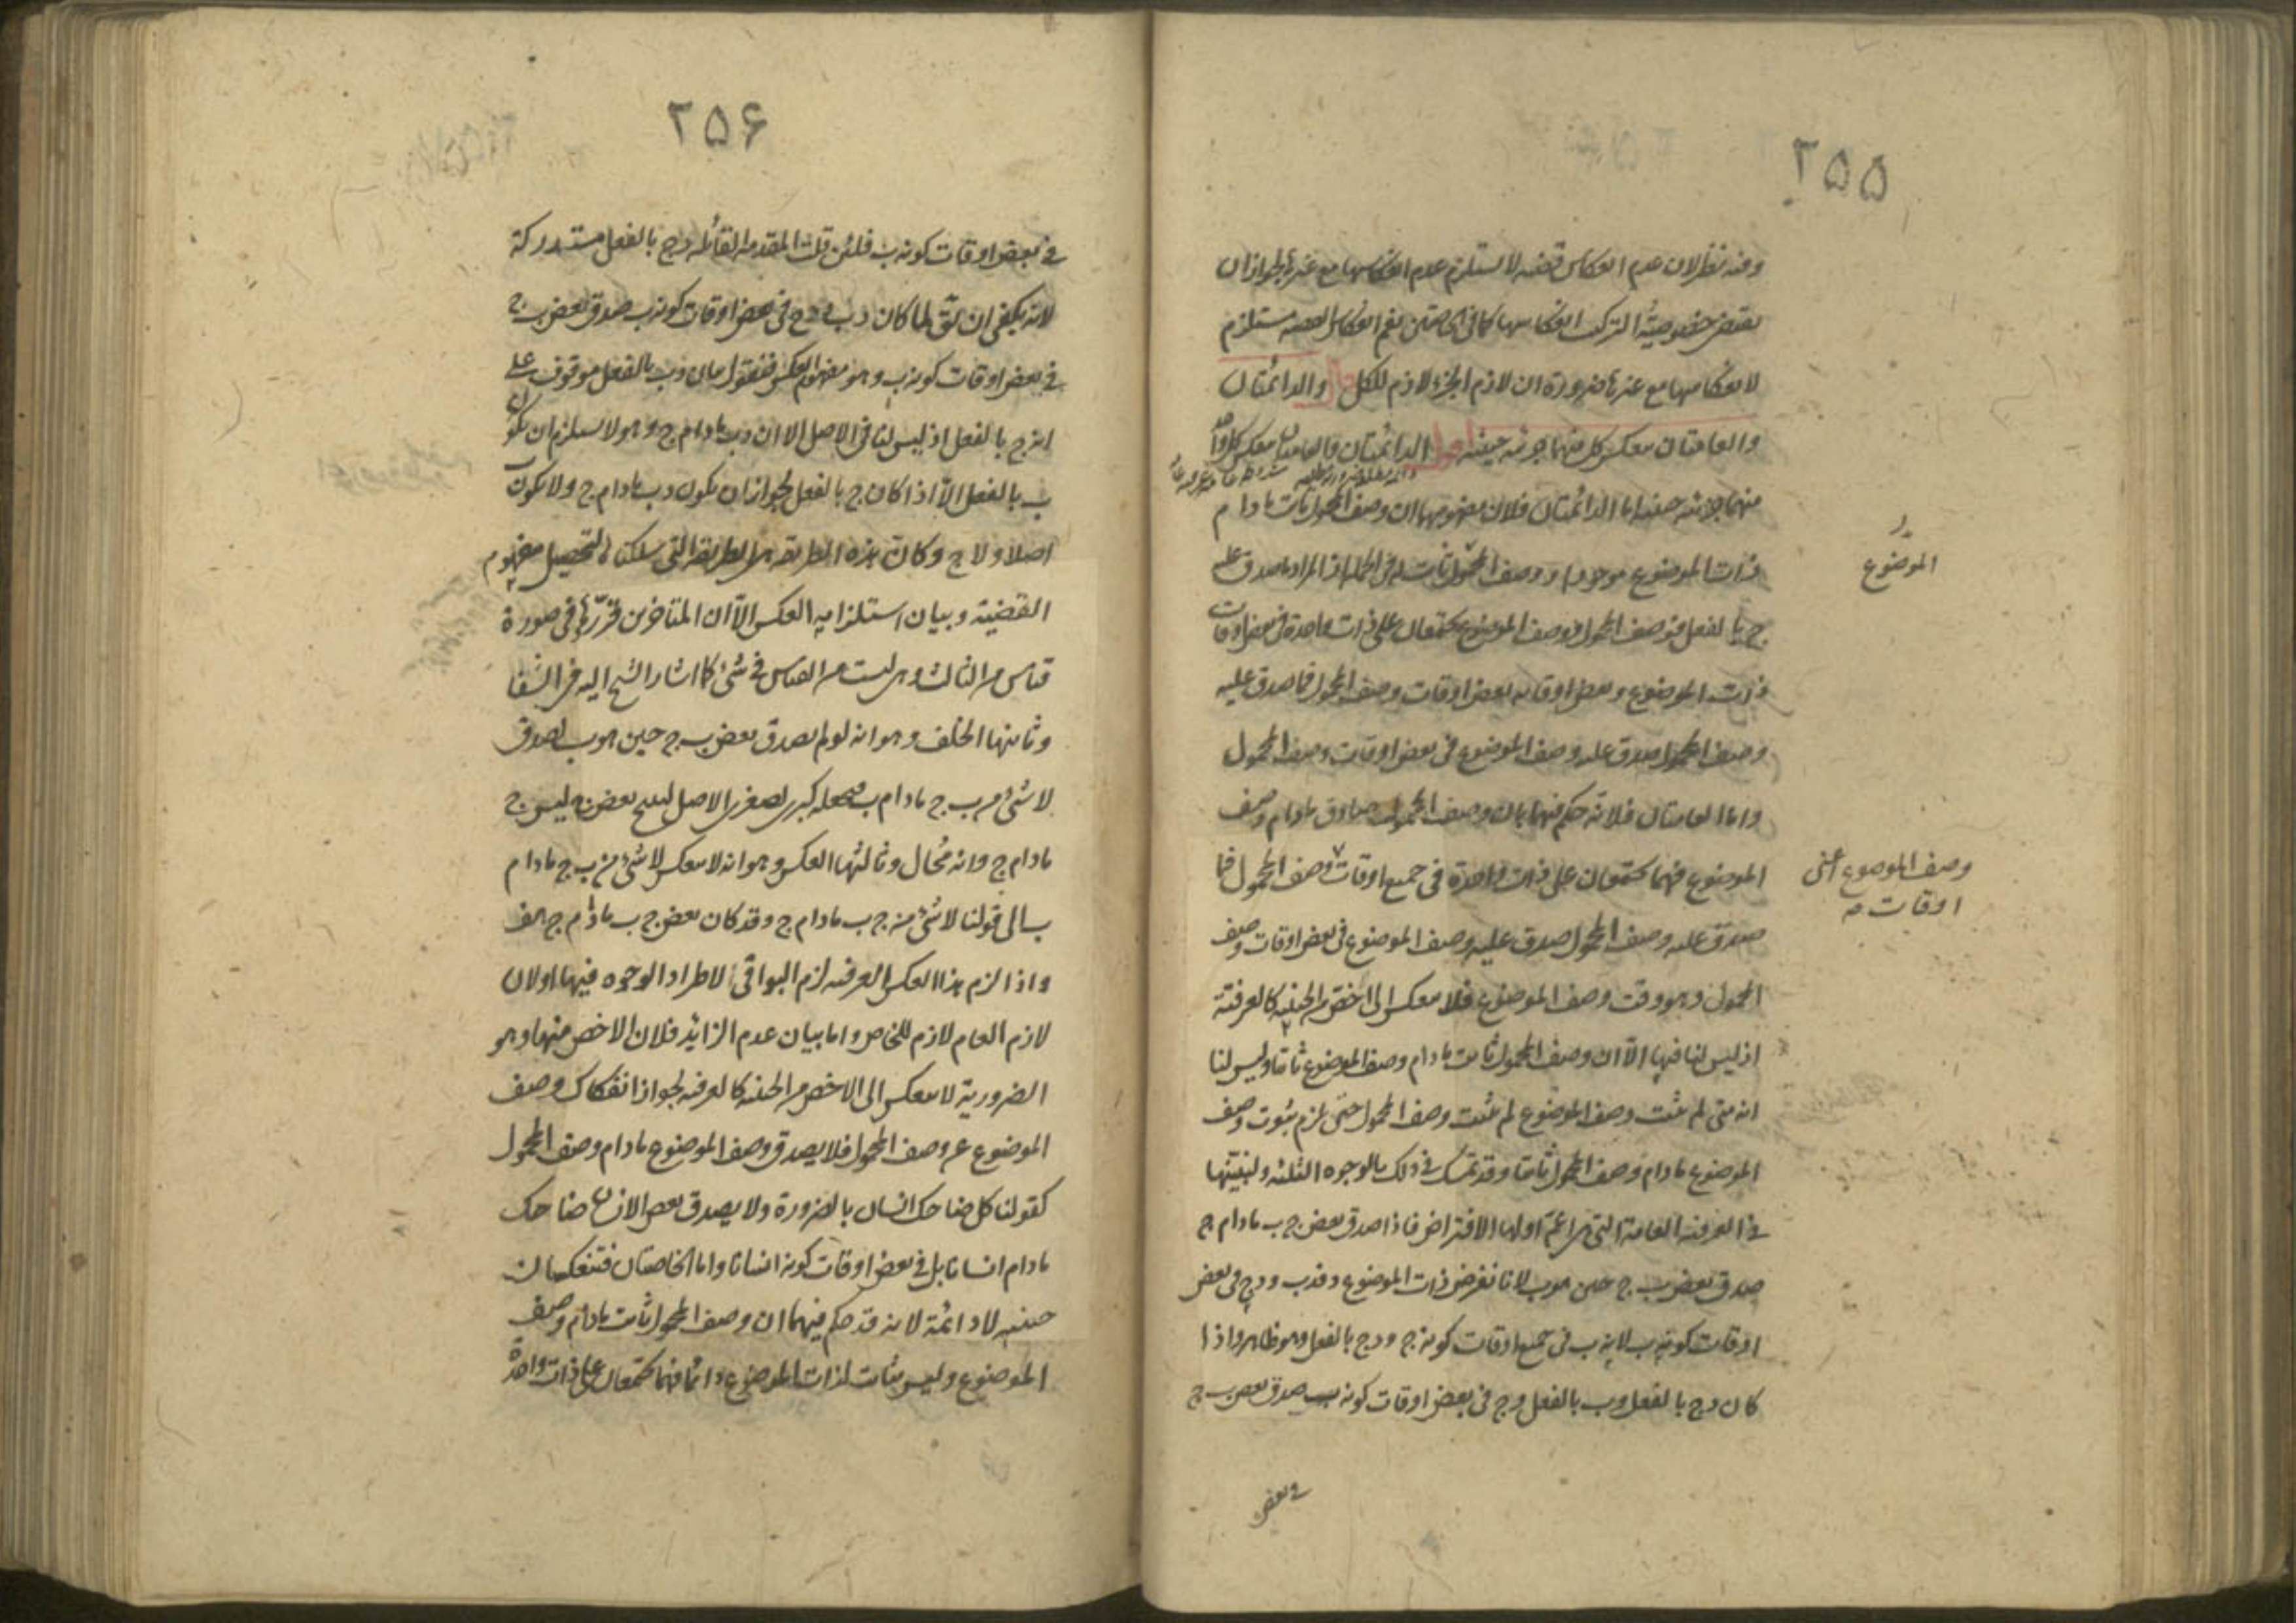 ۲۵۵
وفيه نظر لان عدم انعكاس قضية لا يستلزم عدم انعكاسها مع غيرها لجواز ان
يقتضى خصوصية التركيب انعكاسها كما فى الخاصتين نعم انعكاس القضية مستلزم
لانعكاسها مع غيرها ضرورة ان لازم الجزء لازم للكل قال والدائمتان
والعامتان ينعكس كل منهما جزئية حينية اقول الدائمتان والعامتان ينعكس كل واحدة
منهما جزئية حينية اما الدائمتان فلان مفهومهما ان وصف المحمول ثابت مادام
ذات الموضوع موجودا ووصف الموضوع ثابت له فى الجملة اذ المراد ما صدق عليه
ج بالفعل فوصف المحمول ووصف الموضوع يجتمعان على ذات واحدة فى بعض اوقات
ذات الموضوع وبعض اوقاته بعض اوقات وصف المحمول فما صدق عليه
وصف المحمول صدق عليه وصف الموضوع فى بعض اوقات وصف المحمول
واما العامتان فلانه حكم فيهما بان وصف المحمول صادق مادام وصف
الموضوع فهما يجتمعان على ذات واحدة فى جميع اوقات وصف المحمول فما
صدق عليه وصف المحمول صدق عليه وصف الموضوع فى بعض اوقات وصف
المحمول وهو وقت وصف الموضوع فلا ينعكس الى اخص من الحينية كالعرفية
اذ ليس لنا فيها الا ان وصف المحمول ثابت مادام وصف الموضوع ثابتا وليس لنا
انه متى لم يثبت وصف الموضوع لم يثبت وصف المحمول حتى يلزم ثبوت وصف
الموضوع مادام وصف المحمول ثابتا وقد تمسك فى ذلك بالوجوه الثلثة ولنبينها
فى العرفية العامة التى هى اعم اولها الافتراض فاذا صدق بعض ج ب مادام ج
صدق بعض ب ج حين هو ب لانا نفرض ذات الموضوع د فد ب ود ج فى بعض
اوقات كونه ب لانه ب فى جميع اوقات كونه ج ود ج بالفعل وهو ظاهر واذا
كان د ج بالفعل وب بالفعل وج فى بعض اوقات كونه ب صدق بعض ب ج
الموضوع
وصف الموضوع اعنى
اوقات صح
فى بعض
۲۵۶
فى بعض اوقات كونه ب فلئن قلت المقدمة القائلة د ج بالفعل مستدركة
لانه يكفى ان يق لما كان د ب ود ج فى بعض اوقات كونه ب صدق بعض ب ج
فى بعض اوقات كونه ب وهو مفهوم العكس فنقول بيان د ب بالفعل موقوف على
انه ج بالفعل اذ ليس لنا فى الاصل الا ان د ب مادام ج وهو لا يستلزم ان يكون
ب بالفعل الا اذا كان ج بالفعل لجواز ان يكون د ب مادام ج ولا يكون
اصلا ولا ج وكانت هذه الطريقة هى الطريقة التى سلكناها لتحصيل مفهوم
القضية وبيان استلزامه العكس الا ان المتاخرين قرروها فى صورة
قياس من الثالث وهى ليست من القياس فى شئ كما اشار الشيخ اليه فى الشفا
وثانيها الخلف وهو انه لو لم يصدق بعض ب ج حين هو ب لصدق
لا شئ من ب ج مادام ب نجعله كبرى لصغرى الاصل لينتج بعض ج ليس ج
مادام ج وانه محال وثالثها العكس وهو انه لا ينعكس لا شئ من ب ج مادام
ب الى قولنا لا شئ من ج ب مادام ج وقد كان بعض ج ب مادام ج هف
واذا لزم هذا العكس العرفية لزم البواقى لاطراد الوجوه فيها او لان
لازم العام لازم للخاص واما بيان عدم الزائد فلان الاخص منها وهو
الضرورية لا ينعكس الى الاخص من الحينية كالعرفية لجواز انفكاك وصف
الموضوع عن وصف المحمول فلا يصدق وصف الموضوع مادام وصف المحمول
كقولنا كل ضاحك انسان بالضرورة ولا يصدق بعض الانسان ضاحك
مادام انسانا بل فى بعض اوقات كونه انسانا واما الخاصتان فتنعكسان
حينية لا دائمة لانه قد حكم فيهما ان وصف المحمول ثابت مادام وصف
الموضوع وليس بثابت لذات الموضوع دائما فهما يجتمعان على ذات واحدة